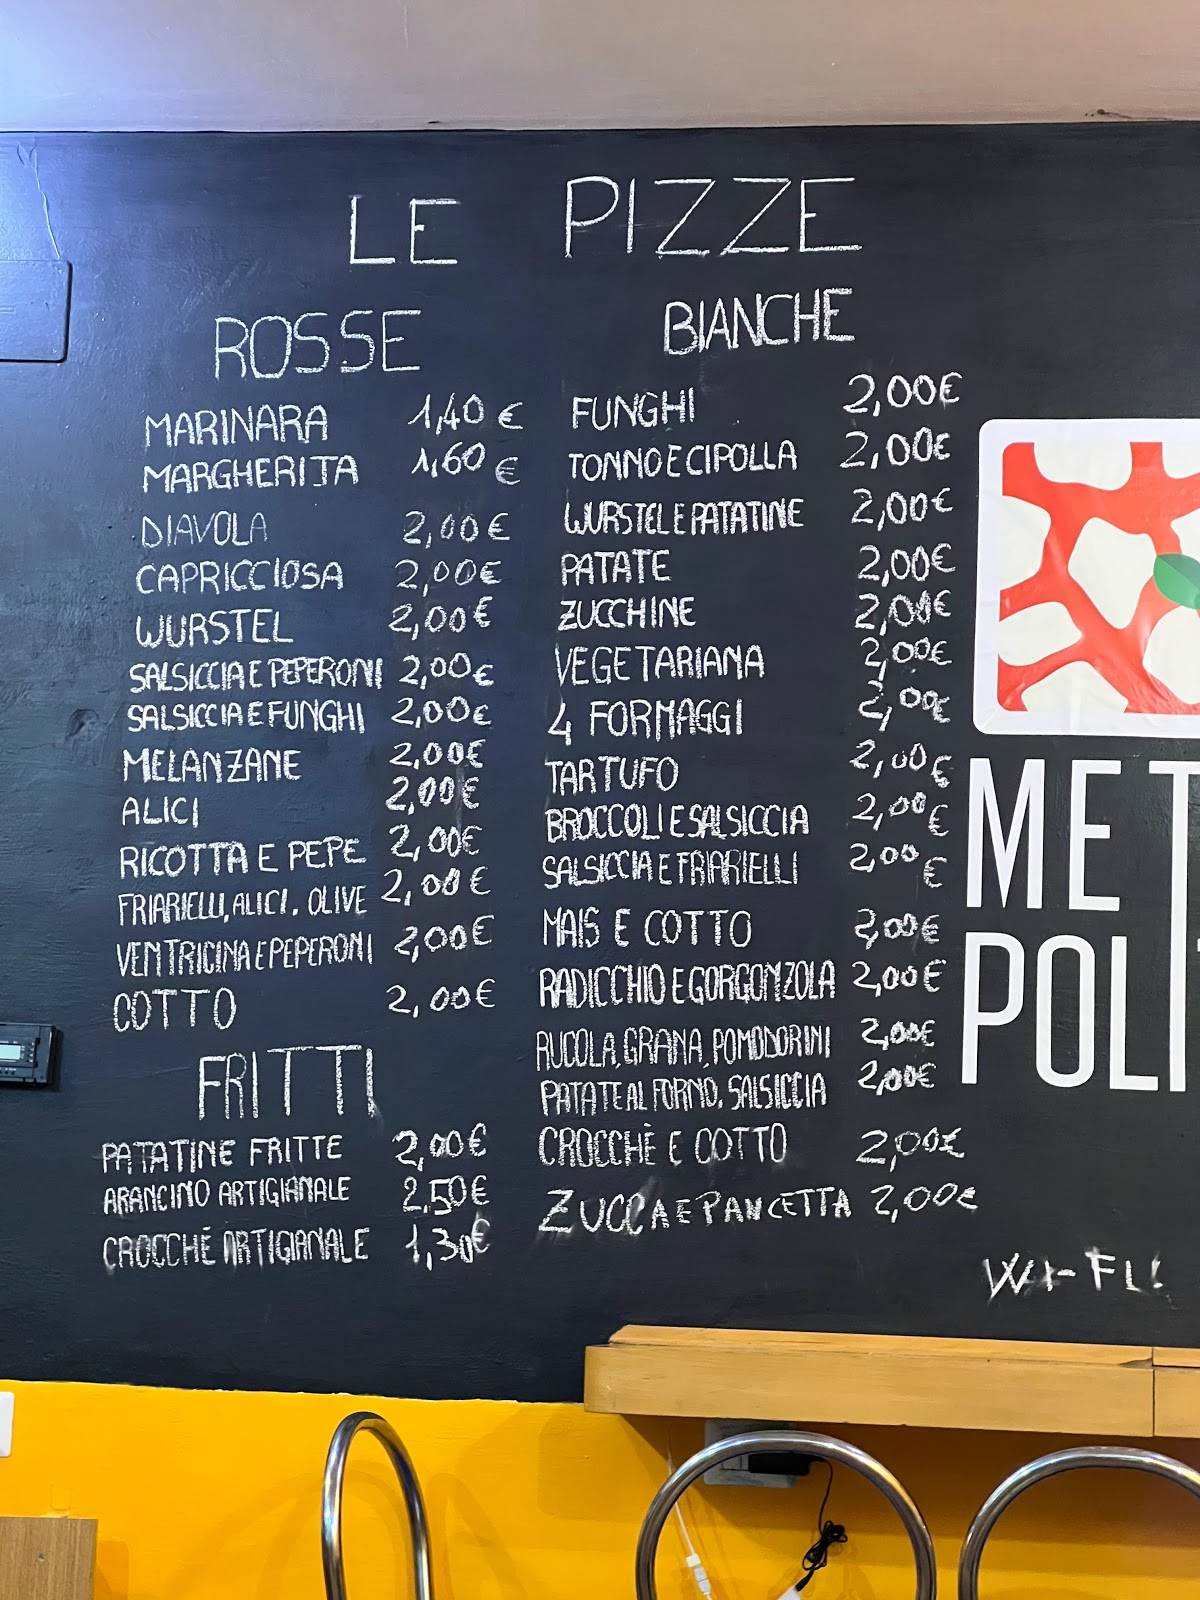 LE PIZZE
ROSSE
MARINARA 1,40 €
MARGHERITA 1,60 €
DIAVOLA 2,00 €
CAPRICCIOSA 2,00€
WURSTEL 2,00€
SALSICCIA E PEPERONI 2,00€
SALSICCIA E FUNGHI 2,00€
MELANZANE 2,00€
ALICI 2,00€
RICOTTA E PEPE 2,00€
FRIARIELLI, ALICI, OLIVE 2,00€
VENTRICINA E PEPERONI 2,00€
COTTO 2,00€
FRITTI
PATATINE FRITTE 2,00€
ARANCINO ARTIGIANALE 2,50€
CROCCHÉ ARTIGIANALE 1,30€
BIANCHE
FUNGHI 2,00€
TONNO E CIPOLLA 2,00€
WURSTEL E PATATINE 2,00€
PATATE 2,00€
ZUCCHINE 2,00€
VEGETARIANA 2,00€
4 FORMAGGI 2,00€
TARTUFO 2,00€
BROCCOLI E SALSICCIA 2,00€
SALSICCIA E FRIARIELLI 2,00€
MAIS E COTTO 2,00€
RADICCHIO E GORGONZOLA 2,00€
RUCOLA, GRANA, POMODORINI 2,00€
PATATE AL FORNO, SALSICCIA 2,00€
CROCCHÈ E COTTO 2,00€
ZUCCA E PANCETTA 2,00€
MET
POLI
WI-FI!